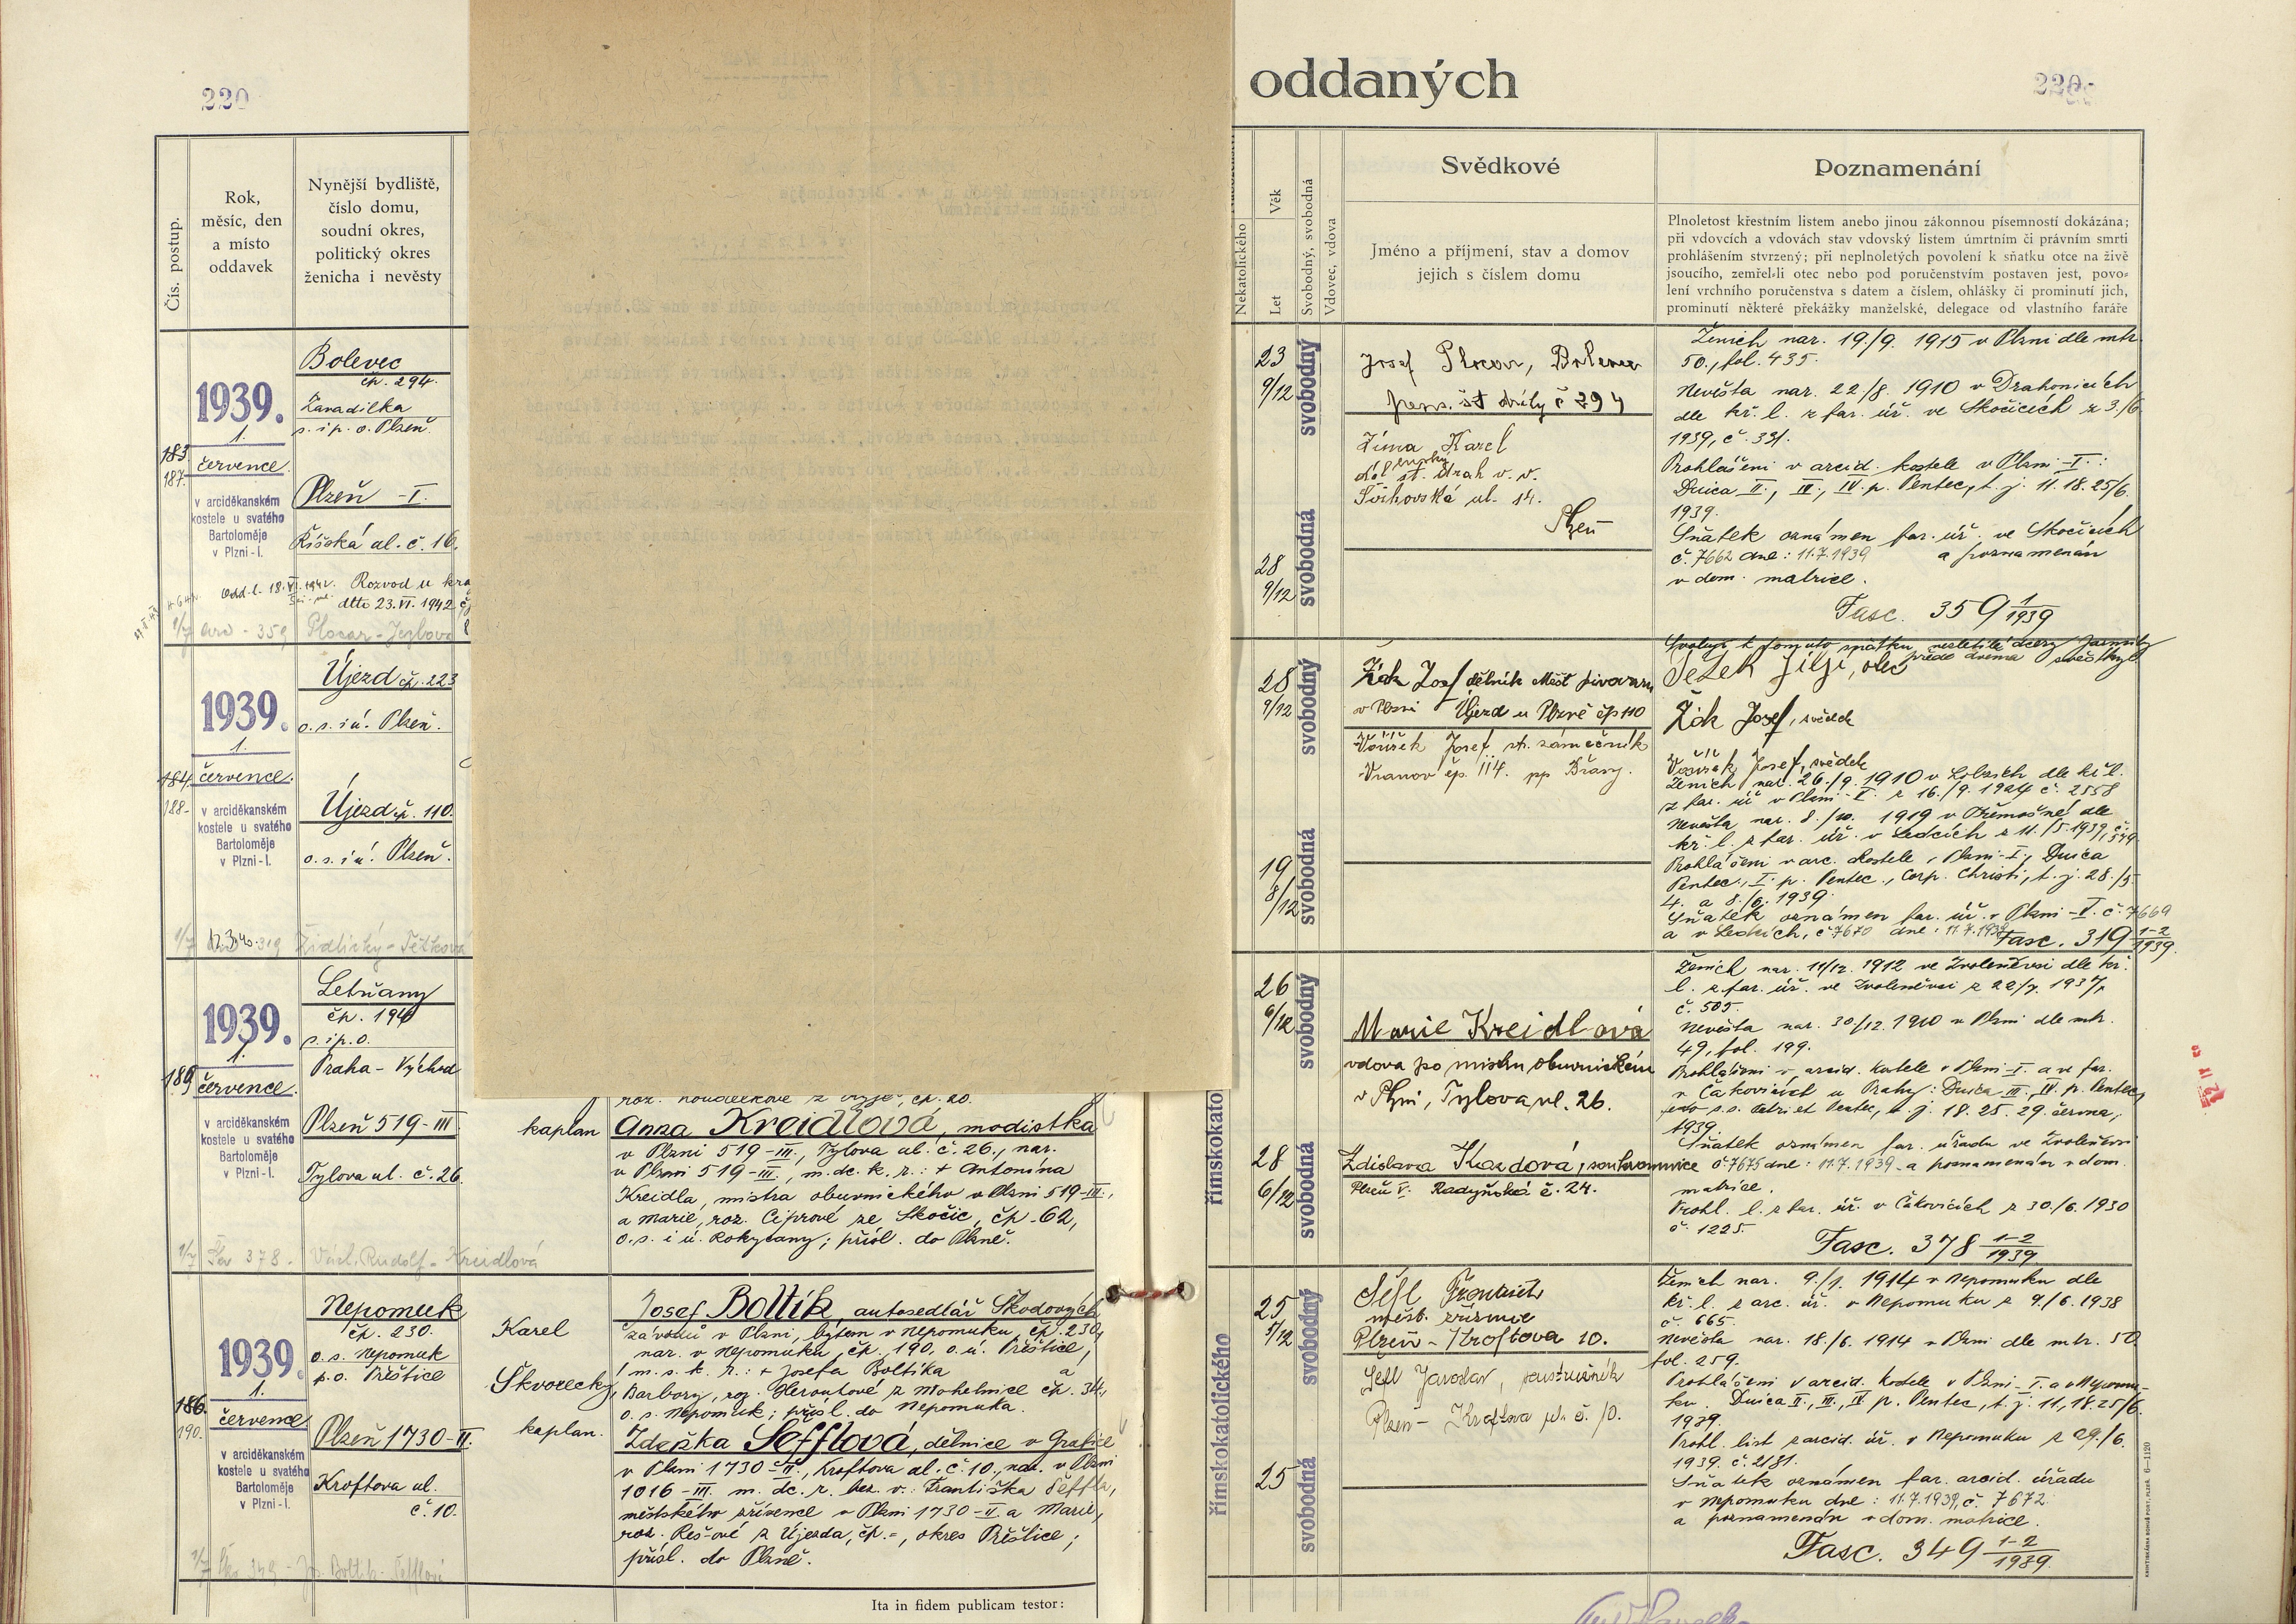 220
oddaných
220
Čís. postup.
Rok,
měsíc, den
a místo
oddavek
Nynější bydliště,
číslo domu,
soudní okres,
politický okres
ženicha i nevěsty
Nekatolického
Věk
Let
Svobodný, svobodná
Vdovec, vdova
Svědkové
Jméno a příjmení, stav a domov
jejich s číslem domu
Poznamenání
Plnoletost křestním listem anebo jinou zákonnou písemností dokázána;
při vdovcích a vdovách stav vdovský listem úmrtním či právním smrti
prohlášením stvrzený; při neplnoletých povolení k sňatku otce na živě
jsoucího, zemřel-li otec nebo pod poručenstvím postaven jest, povo-
lení vrchního poručenstva s datem a číslem, ohlášky či prominutí jich,
prominutí některé překážky manželské, delegace od vlastního faráře
183.
187.
1939.
1.
července
v arciděkanském
kostele u svatého
Bartoloměje
v Plzni-I.
Bolevec
čp. 294.
Zavadilka
s. i p. o. Plzeň.
Plzeň -I.
Říšská ul. č. 16.
Rozvod u kra
dtto 23.VI.1942
359 Plocar-
23
9/12
svobodný
28
9/12
svobodná
Josef Plocar, Bolevec
pens. st dráhy č 294
Zima Karel
st. drah v. v.
ul. 14.
Plzeň
Ženich nar. 19./9. 1915 v Plzni dle mtr.
50., fol. 435.
Nevěsta nar. 22/8. 1910 v Drahonicích
dle kř. l. z far. úř. ve Skočicích z 3./6.
1939, č. 331.
Prohlášeni v arcid. kostele v Plzni-I.:
Duica II., III., IV. p. Pentec, t. j. 11. 18. 25/6.
1939.
Sňatek oznámen far. úř. ve Skočicích
č. 7662 dne: 11.7.1939 a poznamenán
v dom. matrice.
Fasc. 359 1/1939
184.
188.
1939.
1.
července.
v arciděkanském
kostele u svatého
Bartoloměje
v Plzni-I.
Újezd čp. 223
o. s. i ú. Plzeň.
Újezd čp. 110.
o. s. i ú. Plzeň.
319 Židlický-
28
9/12
svobodný
19
8/12
svobodná
Žák Josef dělník Měšť pivovaru
v Plzni Újezd u Plzně čp 110
Voříšek Josef, st. zámečník
Vranov čp. 114. pp Břasy.
Svoluji k tomuto sňatku nezletilé dcery Jarmily
přede dvěma svědky.
Ježek Jiljí, otec
Žák Josef, svědek
Voříšek Josef, svědek
Ženich nar. 26./9. 1910 v Ledcích dle kř. l.
z far. úř v Plzni-I. z 16./9. 1924 č. 2558
Nevěsta nar. 8./10. 1919 v Třemošné dle
kř. l. z far. úř. v Ledcích z 11./5. 1939, č. 349
Prohlášeni v arc. kostele v Plzni-I., Duica
Pentec., I. p. Pentec., Corp. Christi, t. j. 28./5.
4. a 8./6. 1939.
Sňatek oznámen far. úř. v Plzni-V. č. 7669
a v Ledcích, č. 7670 dne: 11.7.1939
Fasc. 319 1-2/1939.
189
1939.
1.
července.
v arciděkanském
kostele u svatého
Bartoloměje
v Plzni-I.
Letňany
čp. 194
s. i p. o.
Praha - Východ
Plzeň 519-III
Tylova ul. č. 26.
378 - Václ. Rudolf - Kreidlová
kaplan
Anna Kreidlová, modistka
v Plzni 519-III., Tylova ul. č. 26., nar.
v Plzni 519-III., m. dc. k. r.: + Antonína
Kreidla, mistra obuvnického v Plzni 519-III.,
a Marie, roz. Ciprové ze Skočic, čp. 62,
o. s. i ú. Rokycany; přísl. do Plzně.
římskokato
26
6/12
svobodný
28
6/12
svobodná
Marie Kreidlová
vdova po mistru obuvnickém
v Plzni, Tylova ul. 26.
Zdislava Kazdová, soukromnice
Plzeň V. Radyňská č. 24.
Ženich nar. 11/12. 1912 ve Zvoleněvsi dle kř.
l. z far. úř. ve Zvoleněvsi z 22/7. 1937,
č. 505.
Nevěsta nar. 30/12. 1910 v Plzni dle mtr.
49, fol. 199.
Prohlášeni v arcid. kostele v Plzni-I. a ve far.
v Čakovicích u Prahy: Duica III., IV. p. Pentec,
festo s. s. Petri et Pauli, t. j. 18. 25. 29. června,
1939.
Sňatek oznámen far. úřadu ve Zvoleněvsi
č. 7675 dne: 11.7.1939. a poznamenán v dom.
matrice.
Prohl. l. z far. úř. v Čakovicích z 30./6. 1930
č. 1225.
Fasc. 378 1-2/1939
186.
190.
1939.
1.
července
v arciděkanském
kostele u svatého
Bartoloměje
v Plzni-I.
Nepomuk
čp. 230.
o. s. Nepomuk
p. o. Přeštice
Plzeň 1730-II.
Kroftova ul.
č. 10.
Karel
Škvorecký,
kaplan.
Josef Boltík, autosedlář Škodových
závodů v Plzni, bytem v Nepomuku, čp. 230,
nar. v Nepomuku, čp. 190, o. ú. Přeštice,
m. s. k. r.: + Josefa Boltíka a
Barbory, roz. Heroutové z Mohelnice čp. 34,
o. s. Nepomuk; přísl. do Nepomuka.
Zdeňka Šefflová, dělnice v Grafice
v Plzni 1730-II., Kroftova ul. č. 10., nar. v Plzni
1016-III. m. dc. r. bez. v.: Františka Šeffla,
městského zřízence v Plzni 1730-II a Marie,
roz. Reš-ové z Újezda, čp.-, okres Přeštice;
přísl. do Plzně.
římskokatolického
25
5/12
svobodný
25
svobodná
Šefl František
městs. zřízenec
Plzeň - Kroftova 10.
Šefl Jaroslav, soustružník
Plzeň - Kroftova ul. č. 10.
Ženich nar. 9./1. 1914 v Nepomuku dle
kř. l. z arc. úř. v Nepomuku z 9./6. 1938
č. 665.
Nevěsta nar. 18/6. 1914 v Plzni dle mtr. 50.
fol. 259.
Prohlášeni v arcid. kostele v Plzni-I. a v Nepomu-
ku. Duica II., III., IV p. Pentec, t. j. 11, 18. 25/6.
1939.
Prohl. list z arcid. úř. v Nepomuku z 29./6.
1939. č. 2/81.
Sňatek oznámen far. arcid. úřadu
v Nepomuku dne: 11.7.1939, č. 7672
a poznamenán v dom. matrice.
Fasc. 349 1-2/1939.
Ita in fidem publicam testor: